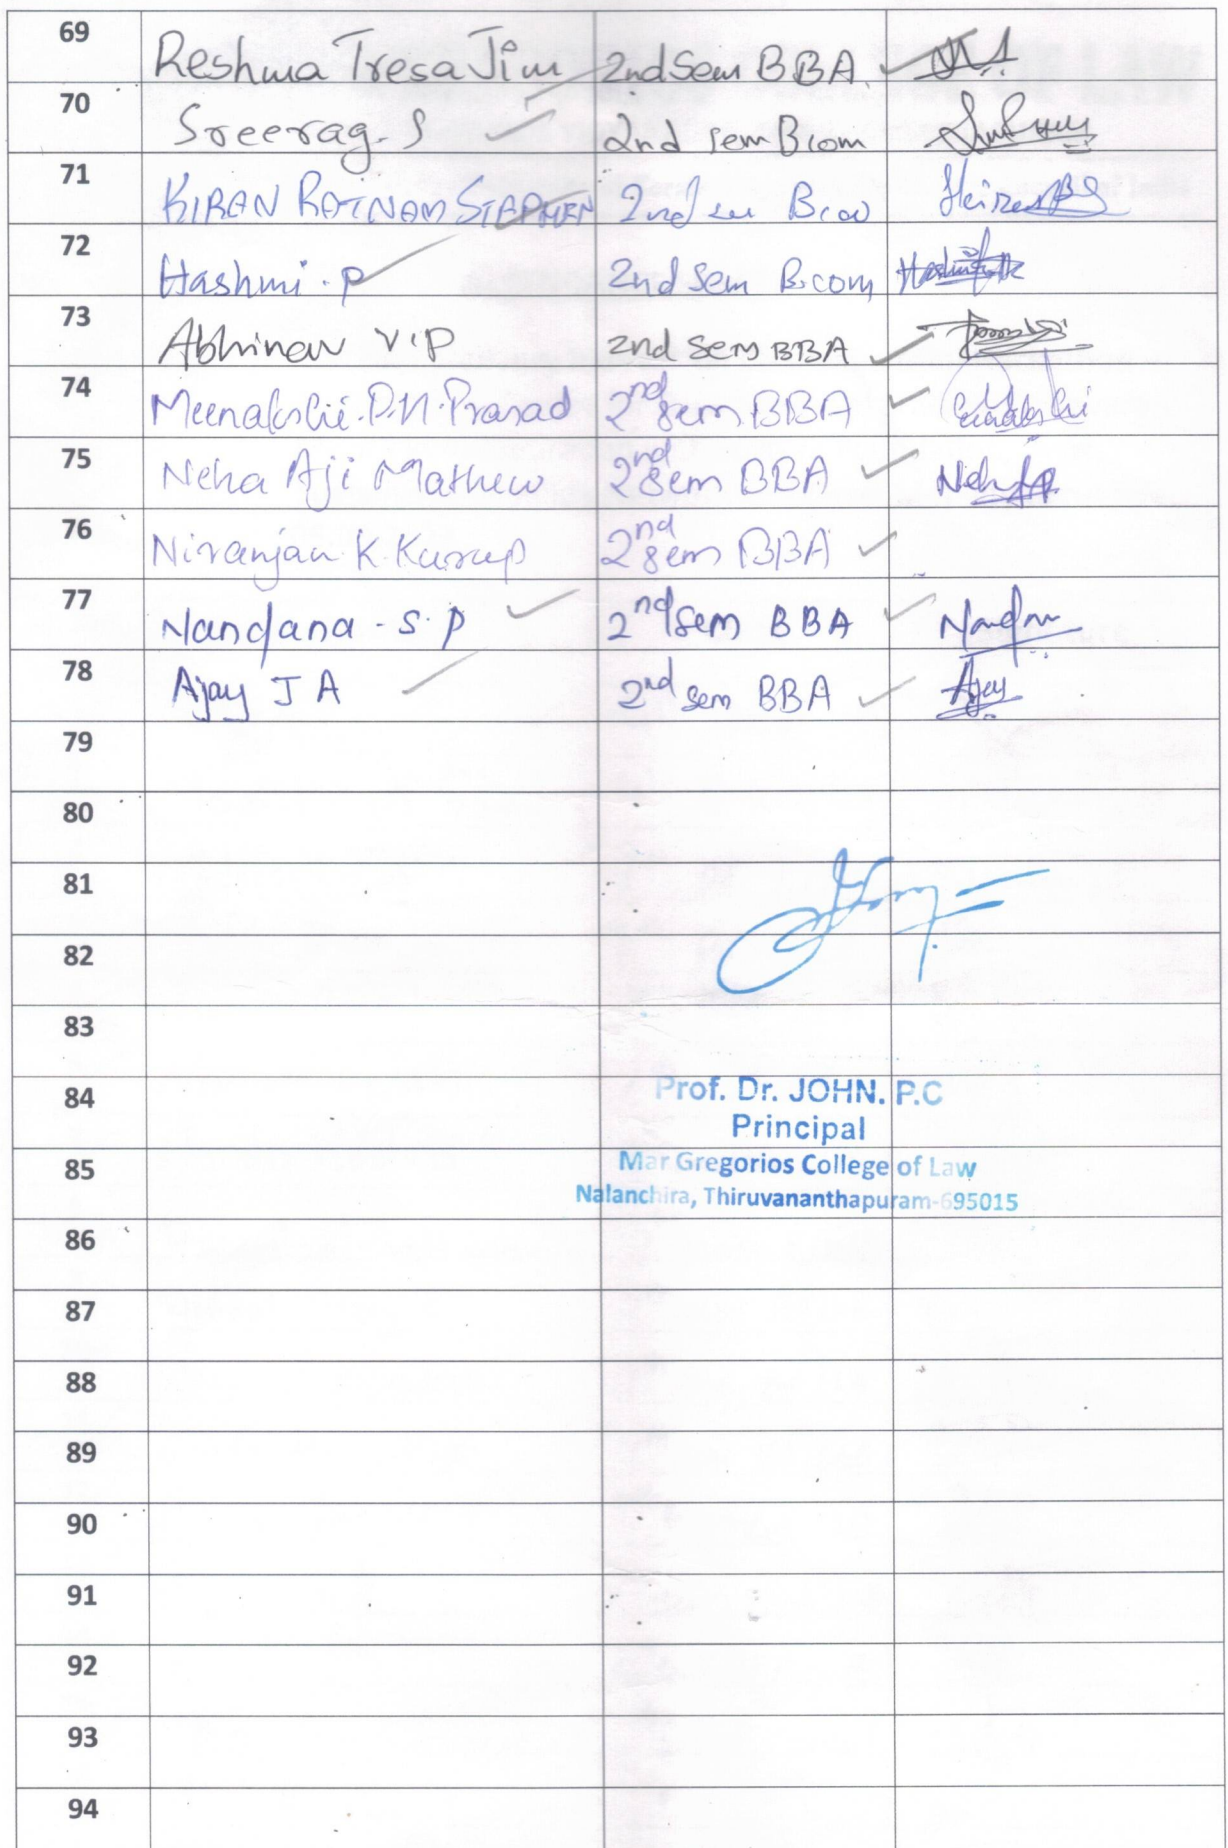 69 Reshma Tresa Jim 2nd Sem BBA.
70 Sreerag. S 2nd sem Bcom
71 KIRAN RATNAM STEPHEN 2nd
72 Hashmi. P 2nd Sem B.com
73 Abhinav V.P 2nd sem BBA
74 Meenakshi.P.N.Prasad 2nd sem BBA
75 Neha Aji Mathew 2nd sem BBA Neha
76 Niranjan K. Kurup 2nd sem BBA
77 Nandana - S. P 2nd sem BBA
78 Ajay J A 2nd sem BBA Ajay
79
80
81
82
83
84 Prof. Dr. JOHN. P.C
Principal
85 Mar Gregorios College of Law
Nalanchira, Thiruvananthapuram-695015
86
87
88
89
90
91
92
93
94